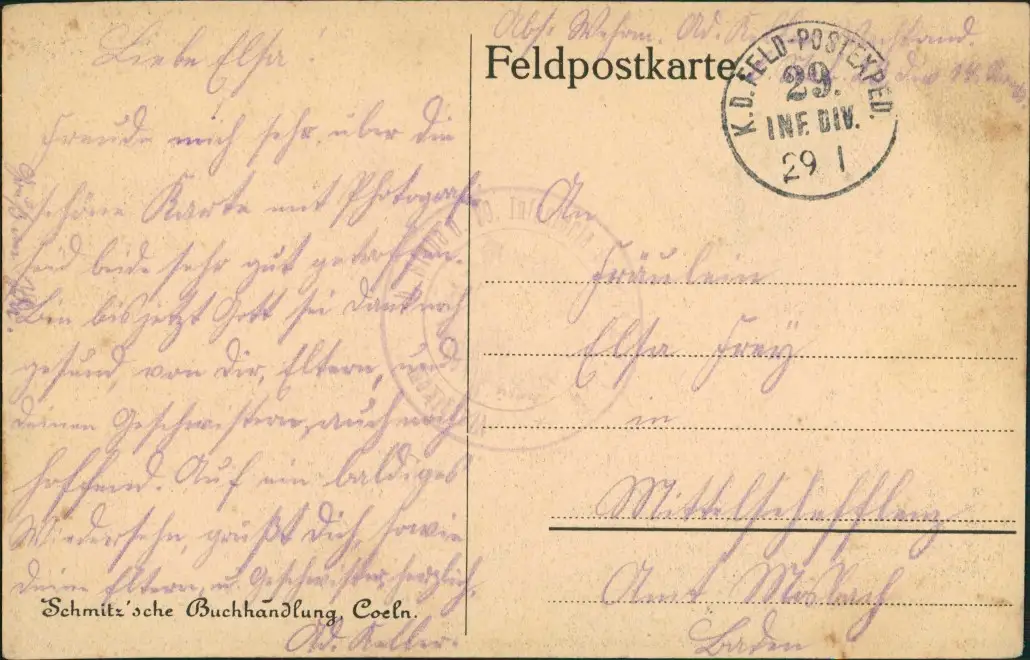 Abs: Wehrm. Ad. Keller
Feldpostkarte
K.D. FELD-POSTEXPED.
29.
INF. DIV.
29 1
Liebe Elsa!
Freude mich sehr, über die
schöne Karte mit Photografie
seid beide sehr gut getroffen.
Bin bis jetzt Gott sei Dank noch
gesund, von Dir, Eltern, und
deinen Geschwistern, auch noch
hoffend. Auf ein baldiges
Wiedersehn, grüßt Dich, sowie
deine Eltern, u. Geschwister herzlich,
Ad. Keller.
Schmitz'sche Buchhandlung, Coeln.
An
Fräulein
Elsa Frey
in
Mittelschefflenz
Amt Mosbach
Baden